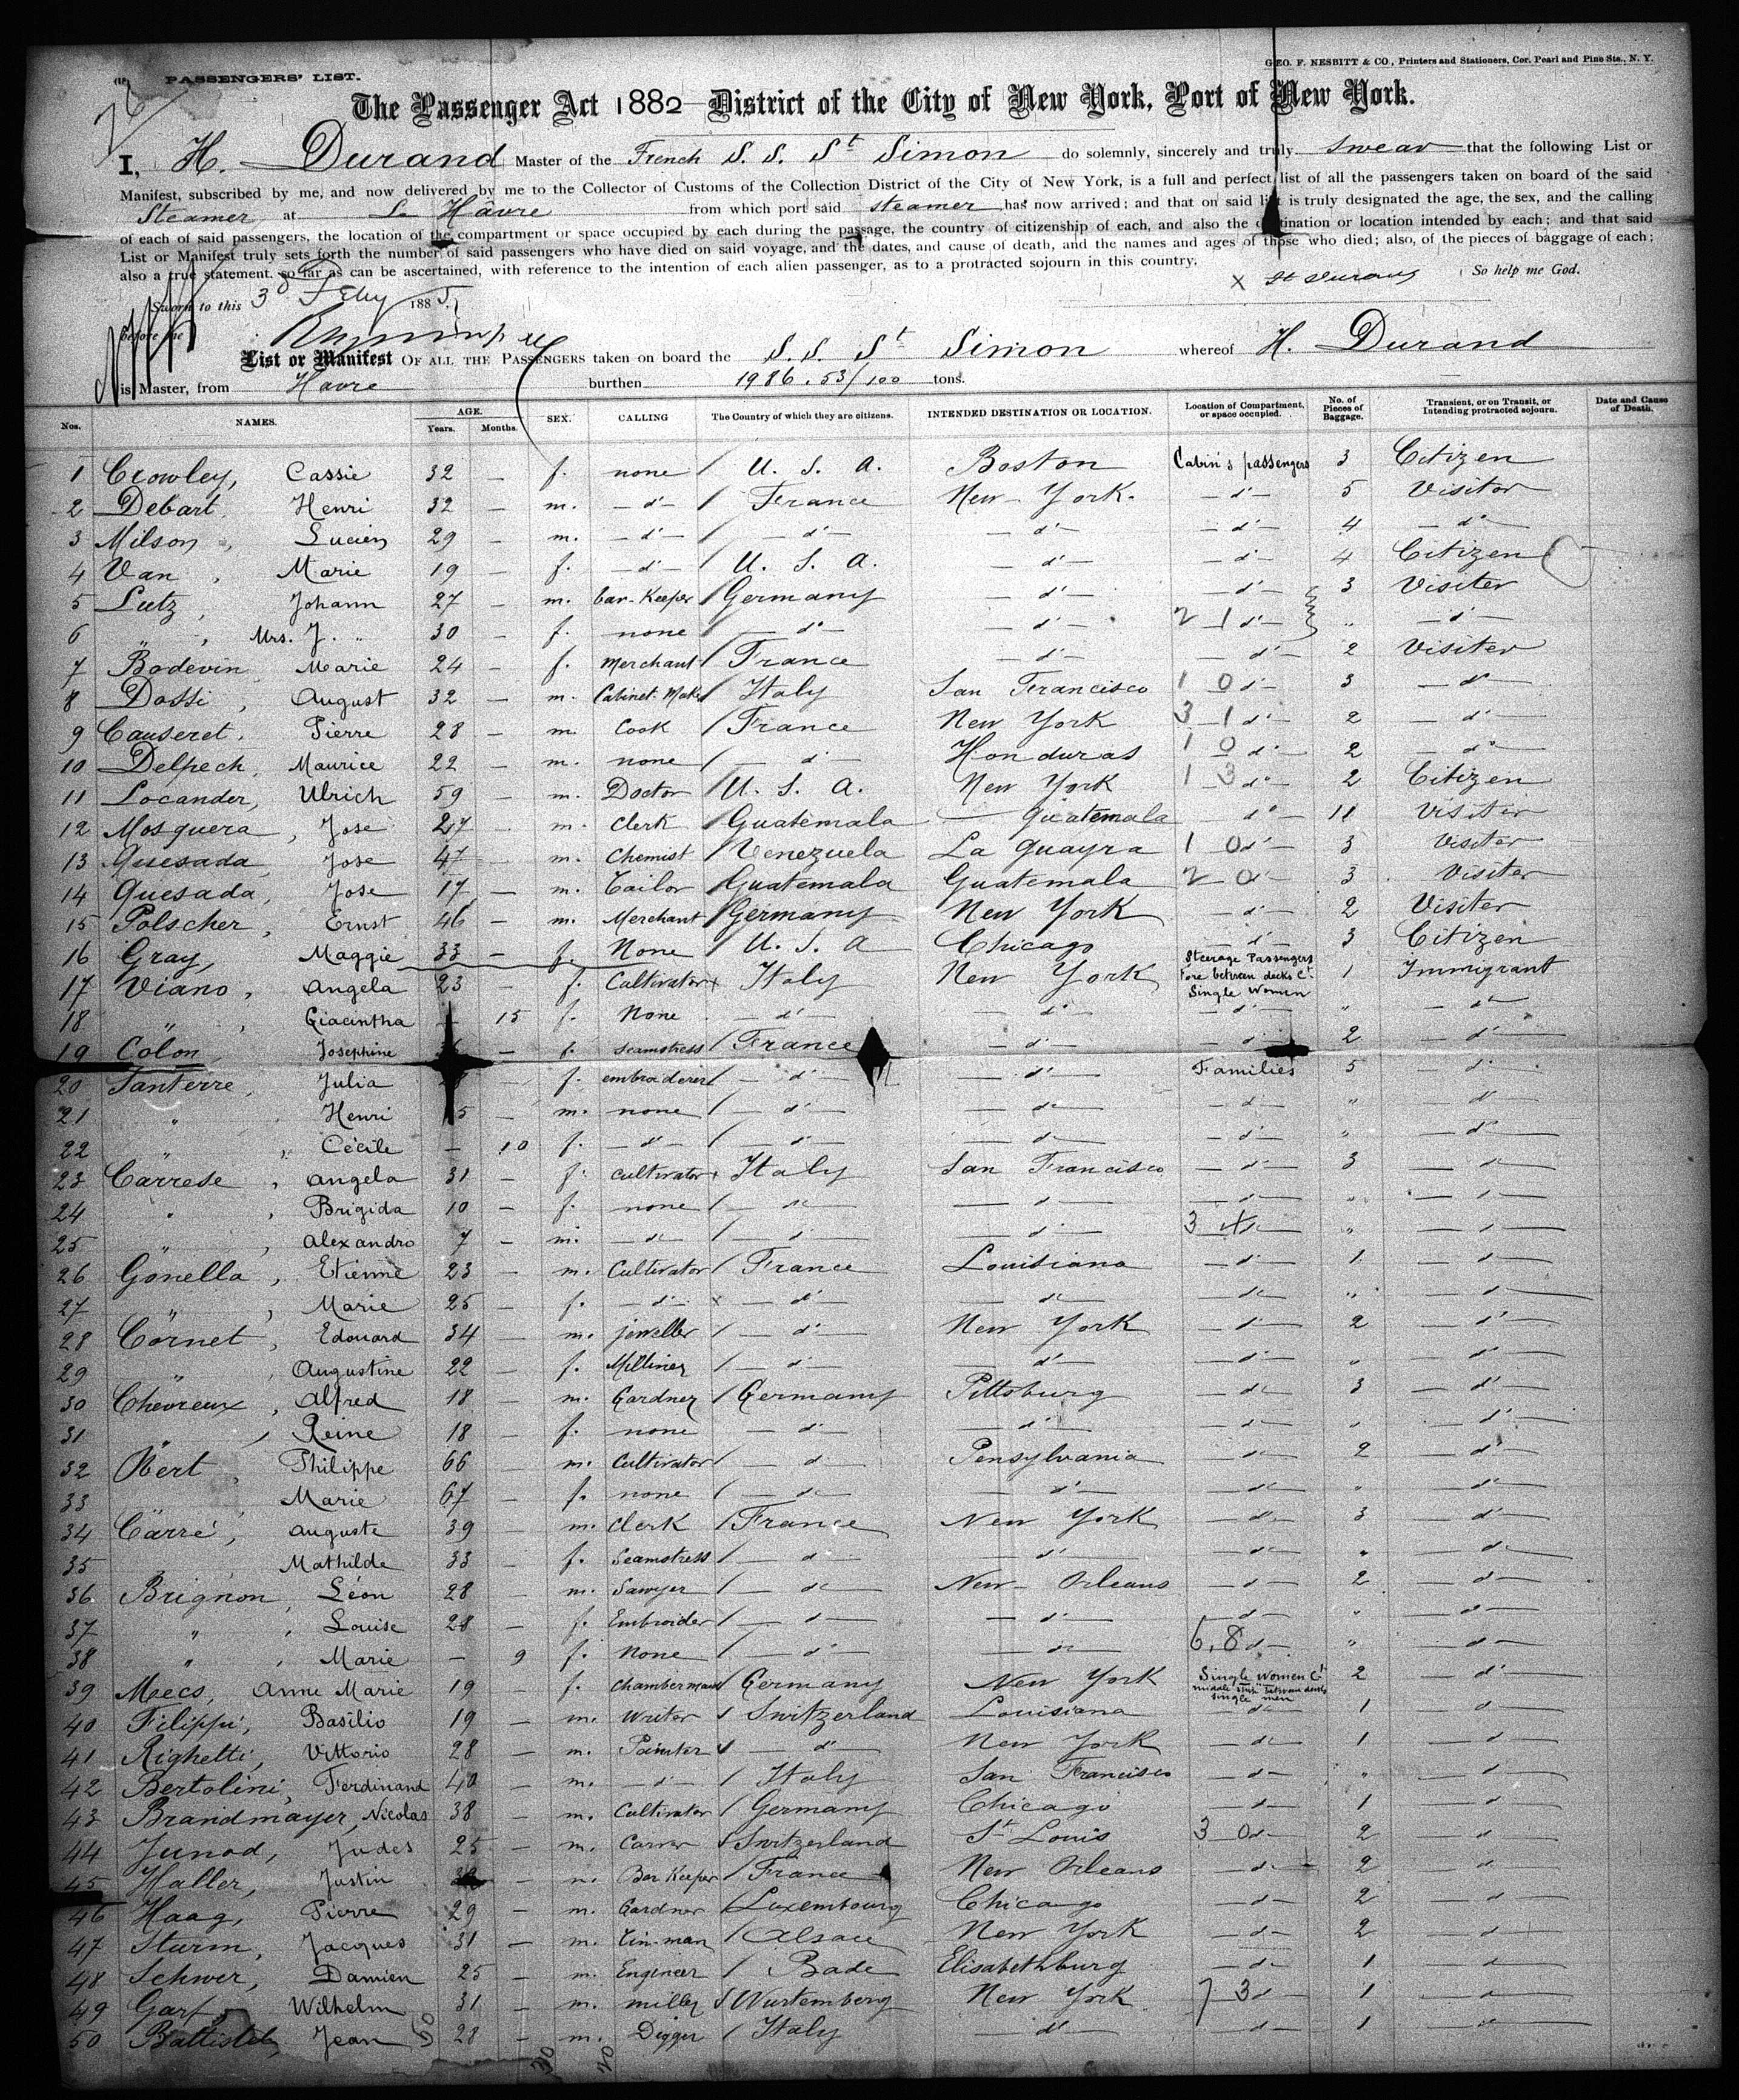 PASSENGERS' LIST.
GEO. F. NESBITT & CO., Printers and Stationers, Cor. Pearl and Pine Sts., N. Y.
The Passenger Act 1882 District of the City of New York, Port of New York.
I, H. Durand Master of the French S. S. St Simon do solemnly, sincerely and truly swear that the following List or
Manifest, subscribed by me, and now delivered by me to the Collector of Customs of the Collection District of the City of New York, is a full and perfect list of all the passengers taken on board of the said
Steamer at Le Hâvre from which port said steamer has now arrived; and that on said list is truly designated the age, the sex, and the calling
of each of said passengers, the location of the compartment or space occupied by each during the passage, the country of citizenship of each, and also the destination or location intended by each; and that said
List or Manifest truly sets forth the number of said passengers who have died on said voyage, and the dates, and cause of death, and the names and ages of those who died; also, of the pieces of baggage of each;
also a true statement, so far as can be ascertained, with reference to the intention of each alien passenger, as to a protracted sojourn in this country. So help me God.
x H Durand
Sworn to this 3d Feby 1885
before me
List or Manifest OF ALL THE PASSENGERS taken on board the S. S. St Simon whereof H. Durand
is Master, from Havre burthen 1986.53/100 tons.
Nos. NAMES. AGE. Years. Months. SEX. CALLING The Country of which they are citizens. INTENDED DESTINATION OR LOCATION. Location of Compartment, or space occupied. No. of Pieces of Baggage. Transient, or on Transit, or Intending protracted sojourn. Date and Cause of Death.
1 Crowley, Cassie 32 — f. none / U. S. A. Boston Cabin's passengers 3 Citizen
2 Debart, Henri 32 — m. —d°— / France New-York. —d°— 5 Visitor
3 Milson, Lucien 29 — m. —d°— / —d°— —d°— —d°— 4 —d°—
4 Van, Marie 19 — f. —d°— / U. S. A. —d°— —d°— 4 Citizen
5 Lutz, Johann 27 — m. bar-Keeper / Germany —d°— —d°— 3 Visiter
6 " , Mrs. J. " 30 — f. none / —d°— —d°— 2 1 d°— " —d°—
7 Bodevin, Marie 24 — f. Merchant / France —d°— —d°— 2 Visiter
8 Dossi, August 32 — m. Cabinet-Make / Italy San Francisco 1 0 d°— 3 —d°—
9 Causeret, Pierre 28 — m. Cook / France New York 3 1 d°— 2 —d°—
10 Delpech, Maurice 22 — m. none / —d°— Honduras 1 0 d°— 2 —d°—
11 Locander, Ulrich 59 — m. Doctor / U. S. A. New York 1 3 d°— 2 Citizen
12 Mosquera, Jose 27 — m. Clerk / Guatemala — Guatemala d° 11 Visiter
13 Quesada, Jose 47 — m. Chemist / Venezuela La Guayra 1 0 d°— 3 Visiter
14 Quesada, Jose 17 — m. Tailor / Guatemala Guatemala 2 0 d°— 3 Visiter
15 Polscher, Ernst 46 — m. Merchant / Germany New York —d°— 2 Visiter
16 Gray, Maggie 33 — f. None / U. S. A Chicago —d°— 3 Citizen
17 Viano, Angela 23 — f. Cultivator x Italy New York Steerage Passengers Fore between decks Ct. Single Women 1 Immigrant
18 " , Giacintha — 15 f. None —d°— —d°— —d°— " —d°—
19 Colon, Josephine — f. seamstress / France —d°— —d°— 2 —d°—
20 Tanterre, Julia f. embroiderer / —d°— —d°— Families 5 —d°—
21 " Henri 5 — m. none / —d°— —d°— —d°— " —d°—
22 " , Cécile — 10 f. —d°— / —d°— —d°— —d°— " —d°—
23 Carrese, Angela 31 — f. cultivator x Italy San Francisco —d°— 3 —d°—
24 " , Brigida 10 — f. none / —d°— —d°— —d°— " —d°—
25 " , Alexandro 7 — m. —d°— / —d°— —d°— 3 4 d°— " —d°—
26 Gonella, Etienne 23 — m. Cultivator / France Louisiana —d°— 1 —d°—
27 " , Marie 25 — f. —d°— x —d°— —d°— —d°— " —d°—
28 Cornet, Edouard 34 — m. jeweller / —d°— New York —d°— 2 —d°—
29 " , Augustine 22 — f. Milliner / —d°— —d°— —d°— " —d°—
30 Chevreux, Alfred 18 — m. Gardner / Germany Pittsburg —d°— 3 —d°—
31 " , Reine 18 — f. none —d°— —d°— —d°— " —d°—
32 Obert, Philippe 66 — m. Cultivator / —d°— Pensylvania —d°— 2 —d°—
33 Marie 67 — f. none / —d°— —d°— —d°— " —d°—
34 Carré, Auguste 39 — m. Clerk / France New York —d°— 3 —d°—
35 Mathilde 33 — f. Seamstress / —d°— —d°— —d°— " —d°—
36 Brignon, Léon 28 — m. Sawyer / —d°— New-Orleans —d°— 2 —d°—
37 " , Louise 28 — f. Embroider / —d°— —d°— —d°— " —d°—
38 " , Marie — 9 f. None / —d°— —d°— 6,8 d°— " —d°—
39 Mecs, Anne Marie 19 — f. Chambermaid / Germany New York Single Women Ct middle between decks single men 2 —d°—
40 Filippi, Basilio 19 — m. Writer / Switzerland Louisiana —d°— 1 —d°—
41 Righetti, Vittorio 28 — m. Painter / —d°— New York —d°— 1 —d°—
42 Bertolini, Ferdinand 40 — m. —d°— / Italy San Francisco —d°— " —d°—
43 Brandmayer, Nicolas 38 — m. Cultivator / Germany Chicago —d°— 1 —d°—
44 Junod, Judes 25 — m. Carver / Switzerland St Louis 3 0 d°— 2 —d°—
45 Haller, Justin — m. Bar Keeper / France New Orleans —d°— 2 —d°—
46 Haag, Pierre 29 — m. Gardner / Luxembourg Chicago —d°— 2 —d°—
47 Sturm, Jacques 31 — m. Tin-man / Alsace New York —d°— 2 —d°—
48 Schwer, Damien 25 — m. Engineer / Bade Elisabethburg —d°— 1 —d°—
49 Garf, Wilhelm 31 — m. miller / Wurtemberg New York 7 3 d°— 1 —d°—
50 Battistel, Jean 28 — m. Digger / Italy —d°— —d°— 1 —d°—